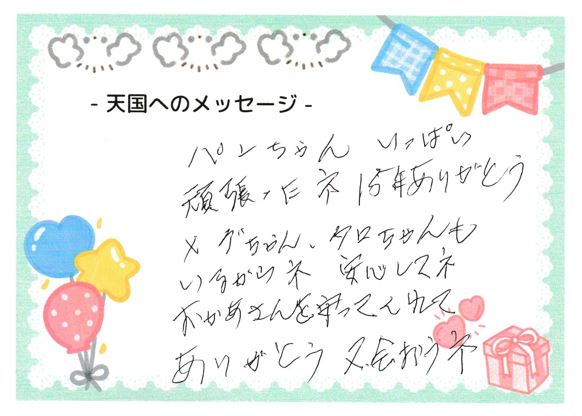 - 天国へのメッセージ -
パンちゃん いっぱい
頑張ったネ 15年ありがとう
メグちゃん、タロちゃんも
いるからネ 安心してネ
おかあさんを守ってくれて
ありがとう 又会おうネ